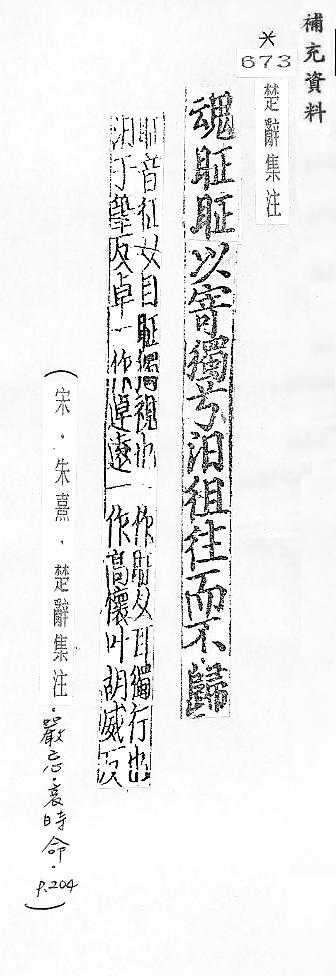 補充資料
*
673
楚辭集注
魂眐眐以寄獨兮汨徂往而不歸
眐音征从目眐獨視也一作聇从耳獨行也
汨于筆反卓一作逴遠一作高懷叶胡威反
(宋．朱熹．楚辭集注．嚴忌．哀時命．P.204)